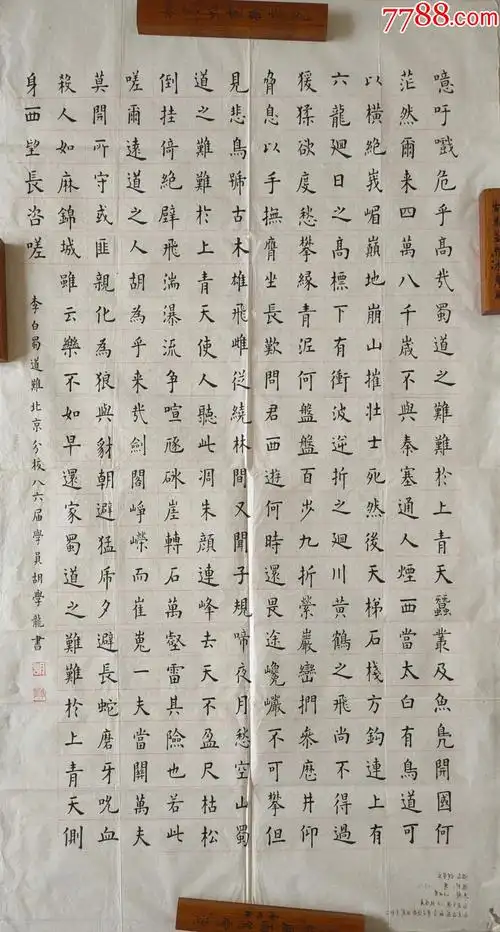 噫吁戲危乎髙哉蜀道之難難於上青天蠶叢及魚鳧開國何
茫然爾来四萬八千歳不與秦塞通人煙西當太白有鳥道可
以橫絕峩嵋巔地崩山摧壯士死然後天梯石棧方鈎連上有
六龍廻日之髙標下有衝波逆折之廻川黃鶴之飛尚不得過
猨猱欲度愁攀緣青泥何盤盤百步九折縈巖巒捫叅歷井仰
脅息以手撫膺坐長歎問君西遊何時還畏途巉巖不可攀但
見悲鳥號古木雄飛雌從繞林間又聞子規啼夜月愁空山蜀
道之難難於上青天使人聽此凋朱顏連峰去天不盈尺枯松
倒挂倚絕壁飛湍瀑流争喧豗砯崖轉石萬壑雷其險也若此
嗟爾遠道之人胡為乎来哉劍閣崢嶸而崔嵬一夫當關萬夫
莫開所守或匪親化為狼與豺朝避猛虎夕避長蛇磨牙吮血
殺人如麻錦城雖云樂不如早還家蜀道之難難於上青天側
身西望長咨嗟
李白蜀道難北京分校八六届學員胡學龍書
7788.com